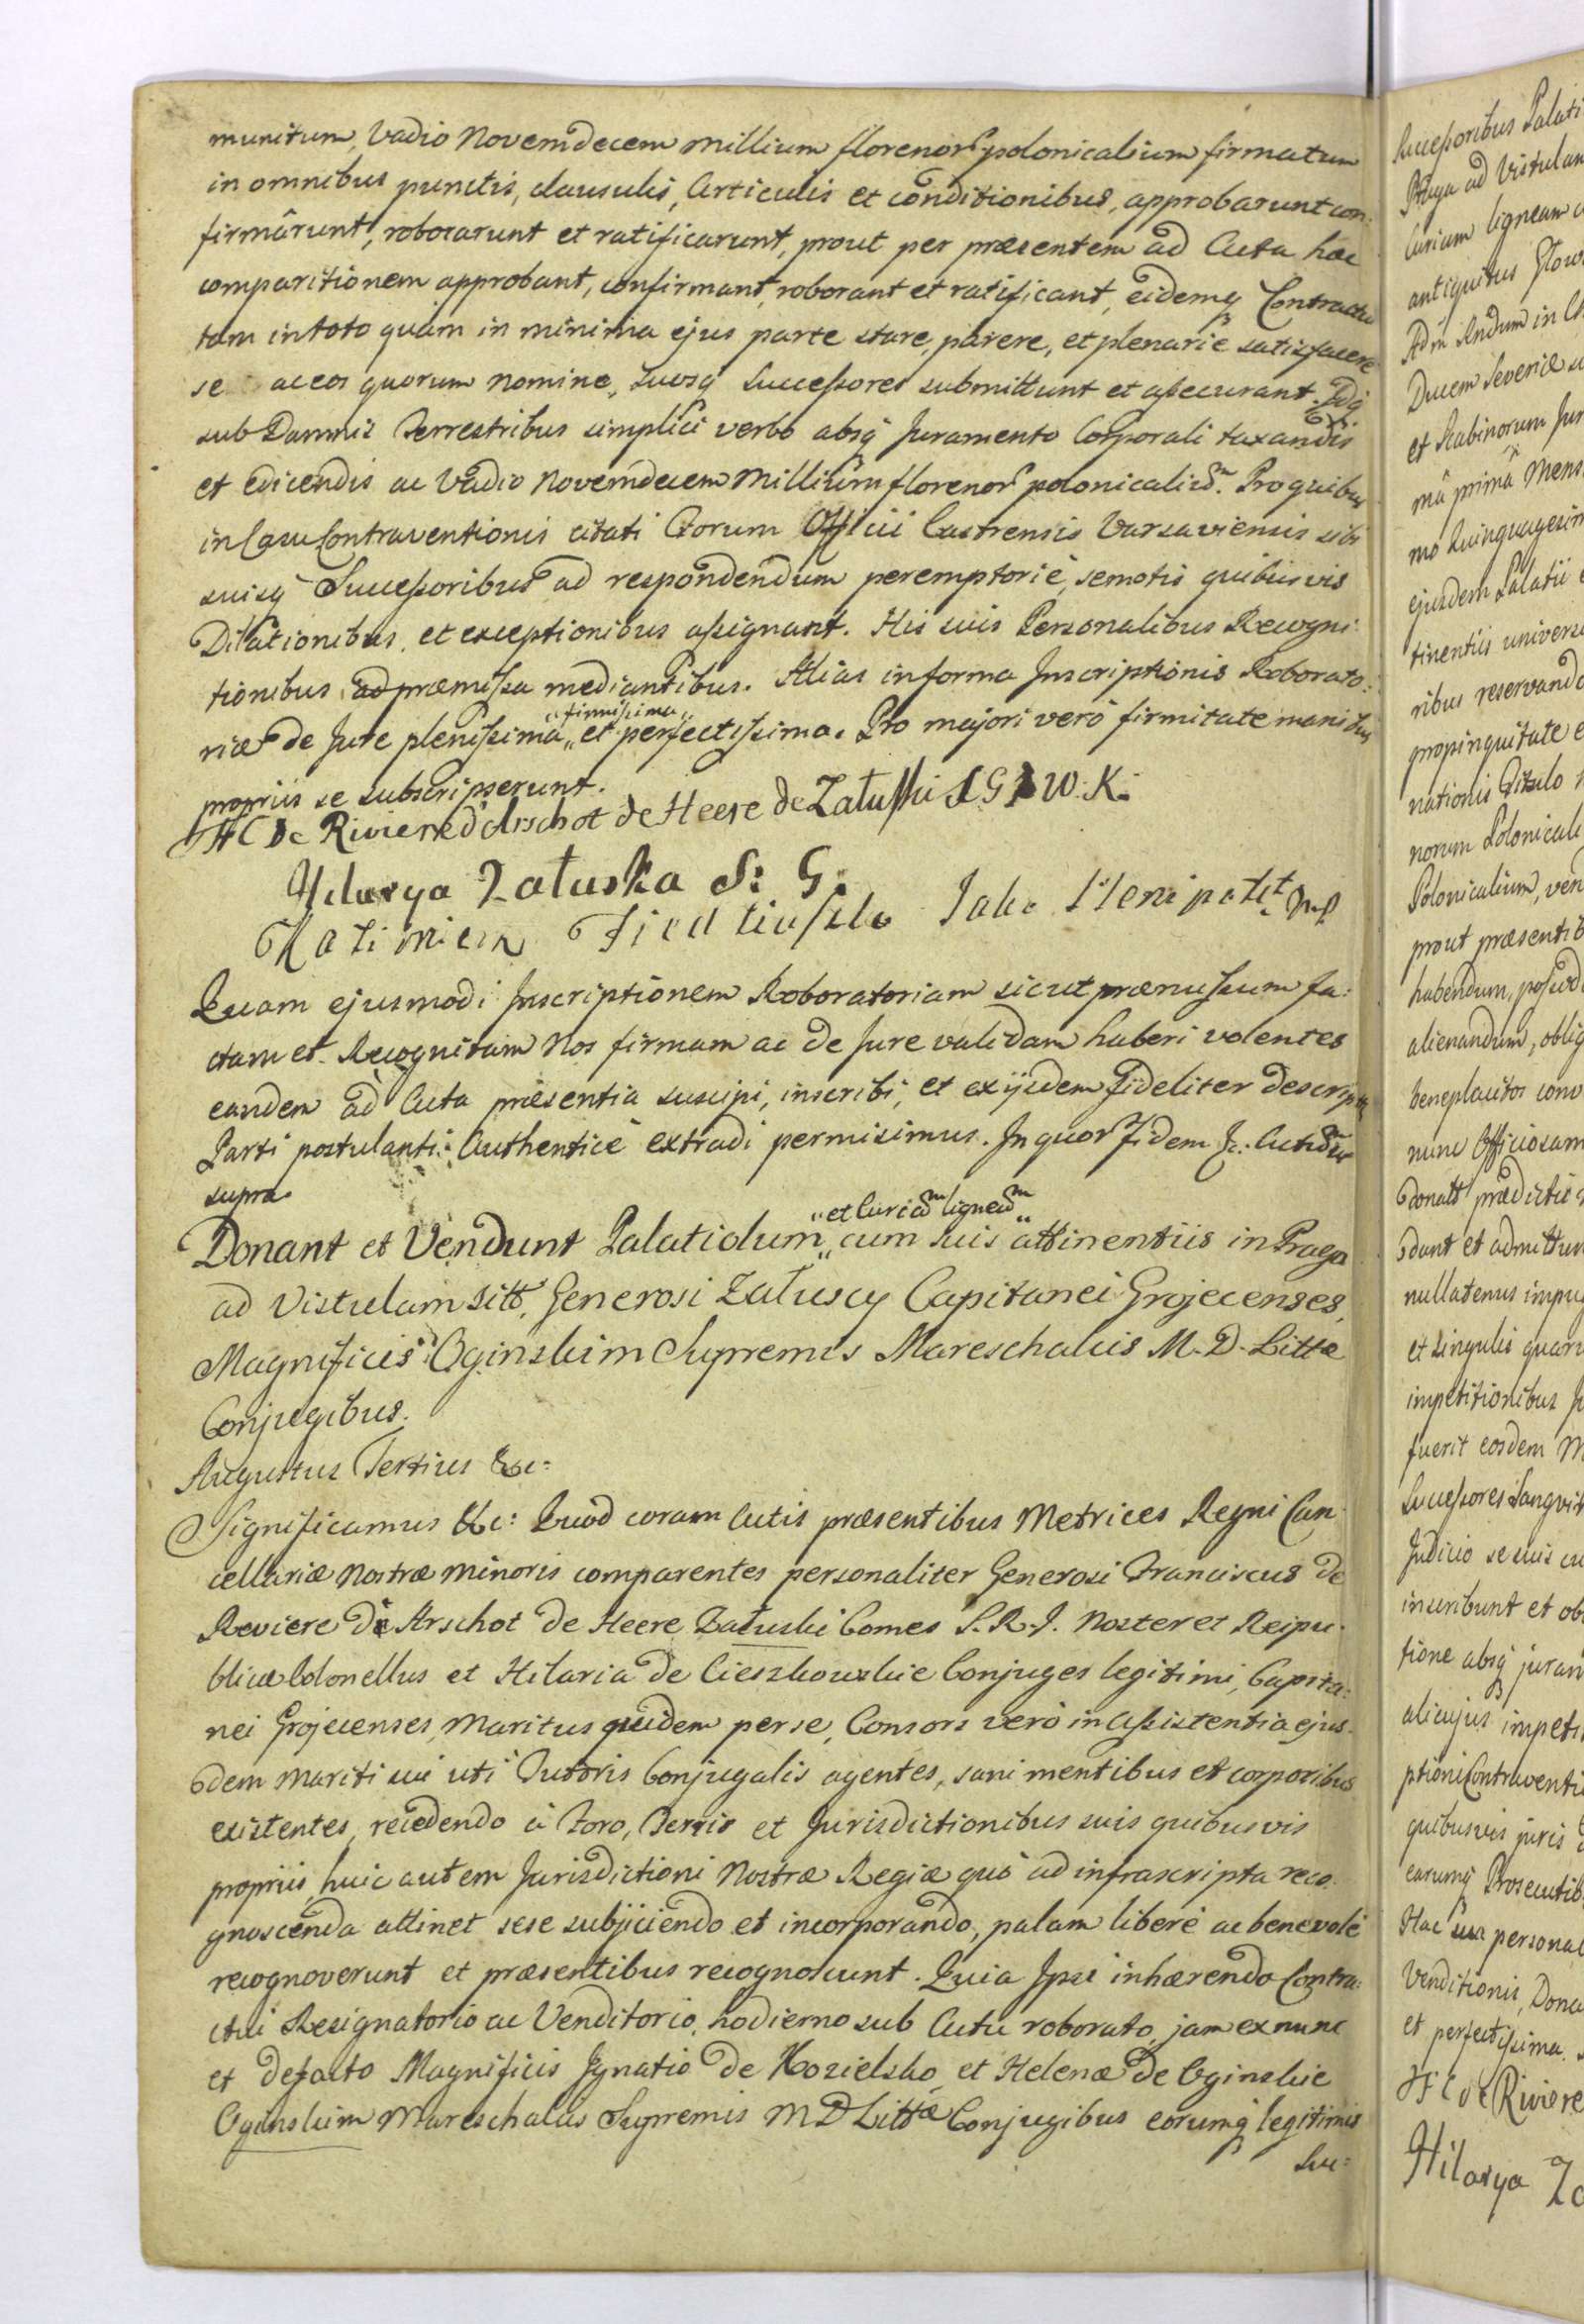 munitum, Vadio Novemdecem Millium florenor polonicalium firmatum
in omnibus punctis, clausulis, Articulis et conditionibus, approbarunt con
firmârunt, roborarunt et ratificarunt, prout per præsentem ad Acta hæc
comparitionem approbant, confirmant, roborant et ratificant, eidemq Contractui
tam in toto quam in minima ejus parte stare, parere, et plenarie satisfacere
se ac eos quorum nomine, Suosq Successores submittunt et assecurant. Idq
sub Damnis Terrestribus simplici verbo absq Juramento Corporali taxandis
et edicendis ac Vadio Novemdecem Millium florenor polonicaliu. Pro quibus
in Casu Contraventionis citati Forum Officii Castrensis Varsaviensis sibi
suisq Successoribus ad respondendum peremptorié, semotis quibusvis
Dilationibus, et exceptionibus assignant. His suis Personalibus Recogni-
tionibus ad præmissa mediantibus. Alias in forma Inscriptionis Roborato:
riæ de Jure plenissima „firmissima„ et perfectissima. Pro majori veró firmitate manibus
propriis se subscripserunt.
FC De Riviere d'Arschot de Heere de Załuski S G W. K.
Hilarya Załuska S: G.
Kazimierz Jako Plenipott mp
Quam ejusmodi Inscriptionem Roboratoriam sicut præmissum fa:
ctam et Recognitam Nos firmam ac de Jure validam haberi volentes
eandem ad Acta præsentia suscipi, inscribi, et ex ijsdem fideliter descriptam
Parti postulanti Authenticé extradi permisimus. In quor Fidem &c. Actum ut
supra
Donant et Vendunt Palatiolum „et Curiam ligneam„ cum suis attinentiis in Praga
ad Vistulam sitt, Generosi Załuscy Capitanei Grojecenses,
Magnificis Oginskim Supremis Mareschalcis M. D. Littæ
Conjugibus.
Augustus Tertius &c:
Significamus &c: Quod coram Actis præsentibus Metrices Regni Can
cellariæ Nostræ Minoris comparentes personaliter Generosi Franciscus de
Reviere de Arschot de Heere Załuski Comes S. R. I. Noster et Reipu-
blicæ Colonellus et Hilaria de Cieszkowskie Conjuges legitimi, Capita:
nei Grojecenses, Maritus quidem per se, Consors veró in Assistentia ejus-
dem Mariti sui uti Tutoris Conjugalis agentes, sani mentibus et corporibus
existentes, recedendo á Foro, Terris et Jurisdictionibus suis quibusvis
propriis, huic autem Jurisdictioni Nostræ Regiæ quó ad infrascripta reco-
gnoscenda attinet sese subjiciendo et incorporando, palam liberé ac benevolé
recognoverunt et præsentibus recognoscunt. Quia Ipsi inhærendo Contra:
ctui Resignatorio ac Venditorio, hodierno sub Actu roborato, jam ex nunc
et defacto Magnificis Ignatio de Kozielsko et Helenæ de Oginskie
Oginskim Mareschalcis Supremis M D Littæ Conjugibus eorumq legitimis
Suc:
Successoribus Palati
Praga ad Vistulam
Curiam ligneam
antiquitus
Ducem Severiæ
et Scabinorum Jur
mâ primâ Mens
mo Quinquagesim
ejusdem Palatii
tinentiis univers
ribus reservando
propinquitate
nationis Titulo
norum Polonicali
Polonicalium, ven
prout præsentib
habendum, possid
alienandum, oblig
beneplacitos conv
nunc Officiosam
donatt prædictis
dant et admittun
nullatenus impug
et singulis quaru
impetitionibus
fuerit eosdem M
Successores Sangvi
Judicio se suis
inscribunt et ob
tione absq juram
alicujus impeti
ptioni Contraventi
quibusvis juris
earumq Prosecutib
Hac sua personal
Venditionis, Dona
et perfectissima.
FC de Riviere
Hilarya Za